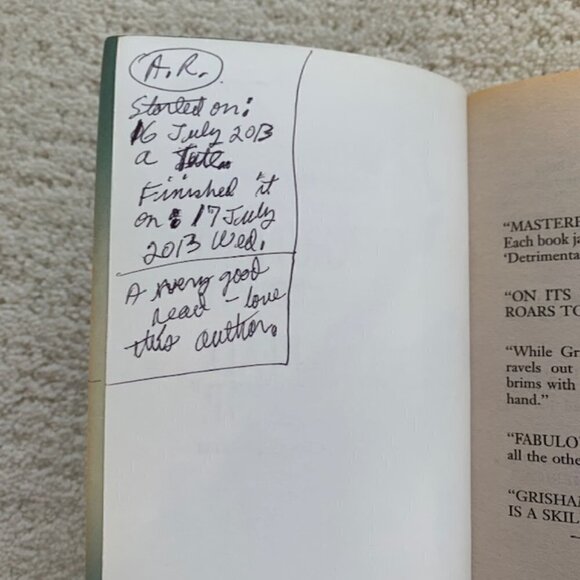 A.R.
Started on:
16 July 2013
a Tue.
Finished it
on: 17 July
2013 Wed.
A very good
read - love
this author.
"MASTERF
Each book ja
'Detrimenta
"ON ITS
ROARS TO
"While Gr
ravels out
brims with
hand."
"FABULO
all the othe
"GRISHAM
IS A SKIL